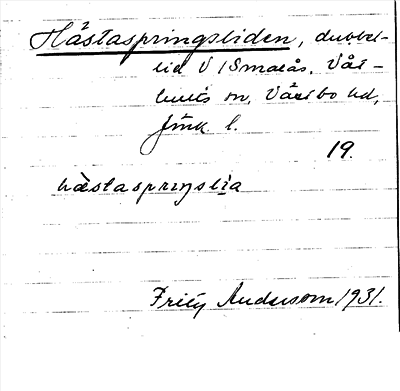 Hästaspringsliden, dubbel-
lid V / Smalås. Vår-
 sn, Vartbo hd,
Jönk l.
19.
hästaspriŋslia
Fritz Andersson 1931.